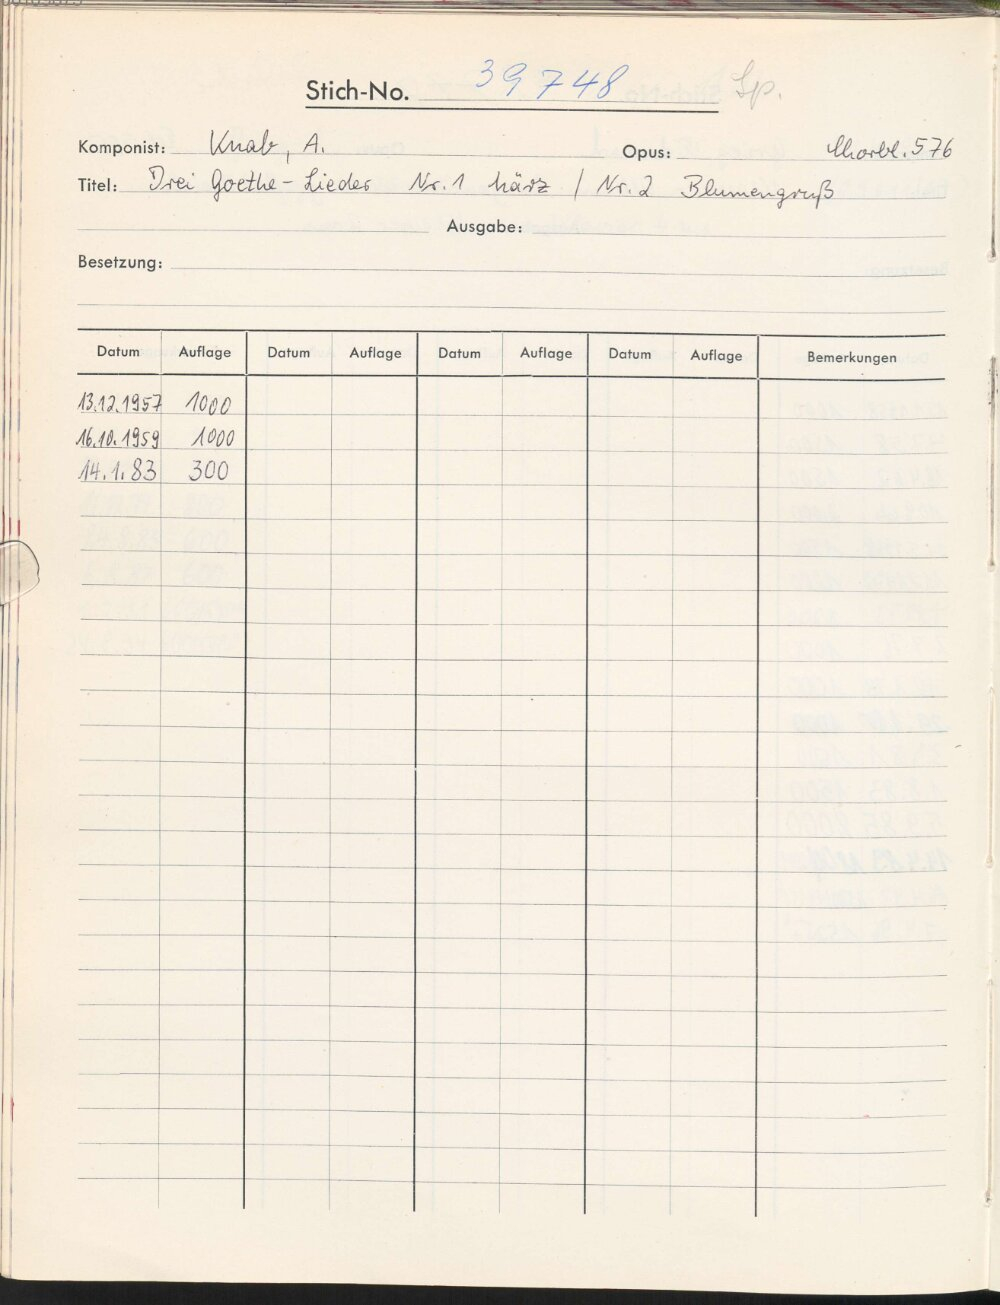 Stich-No. 39748 Sp.
Komponist: Knab, A. Opus: Chorbl. 576
Titel: Drei Goethe-Lieder Nr. 1 März / Nr. 2 Blumengruß
Ausgabe:
Besetzung:
Datum Auflage Datum Auflage Datum Auflage Datum Auflage Bemerkungen
13.12.1957 1000
16.10.1959 1000
14.1.83 300